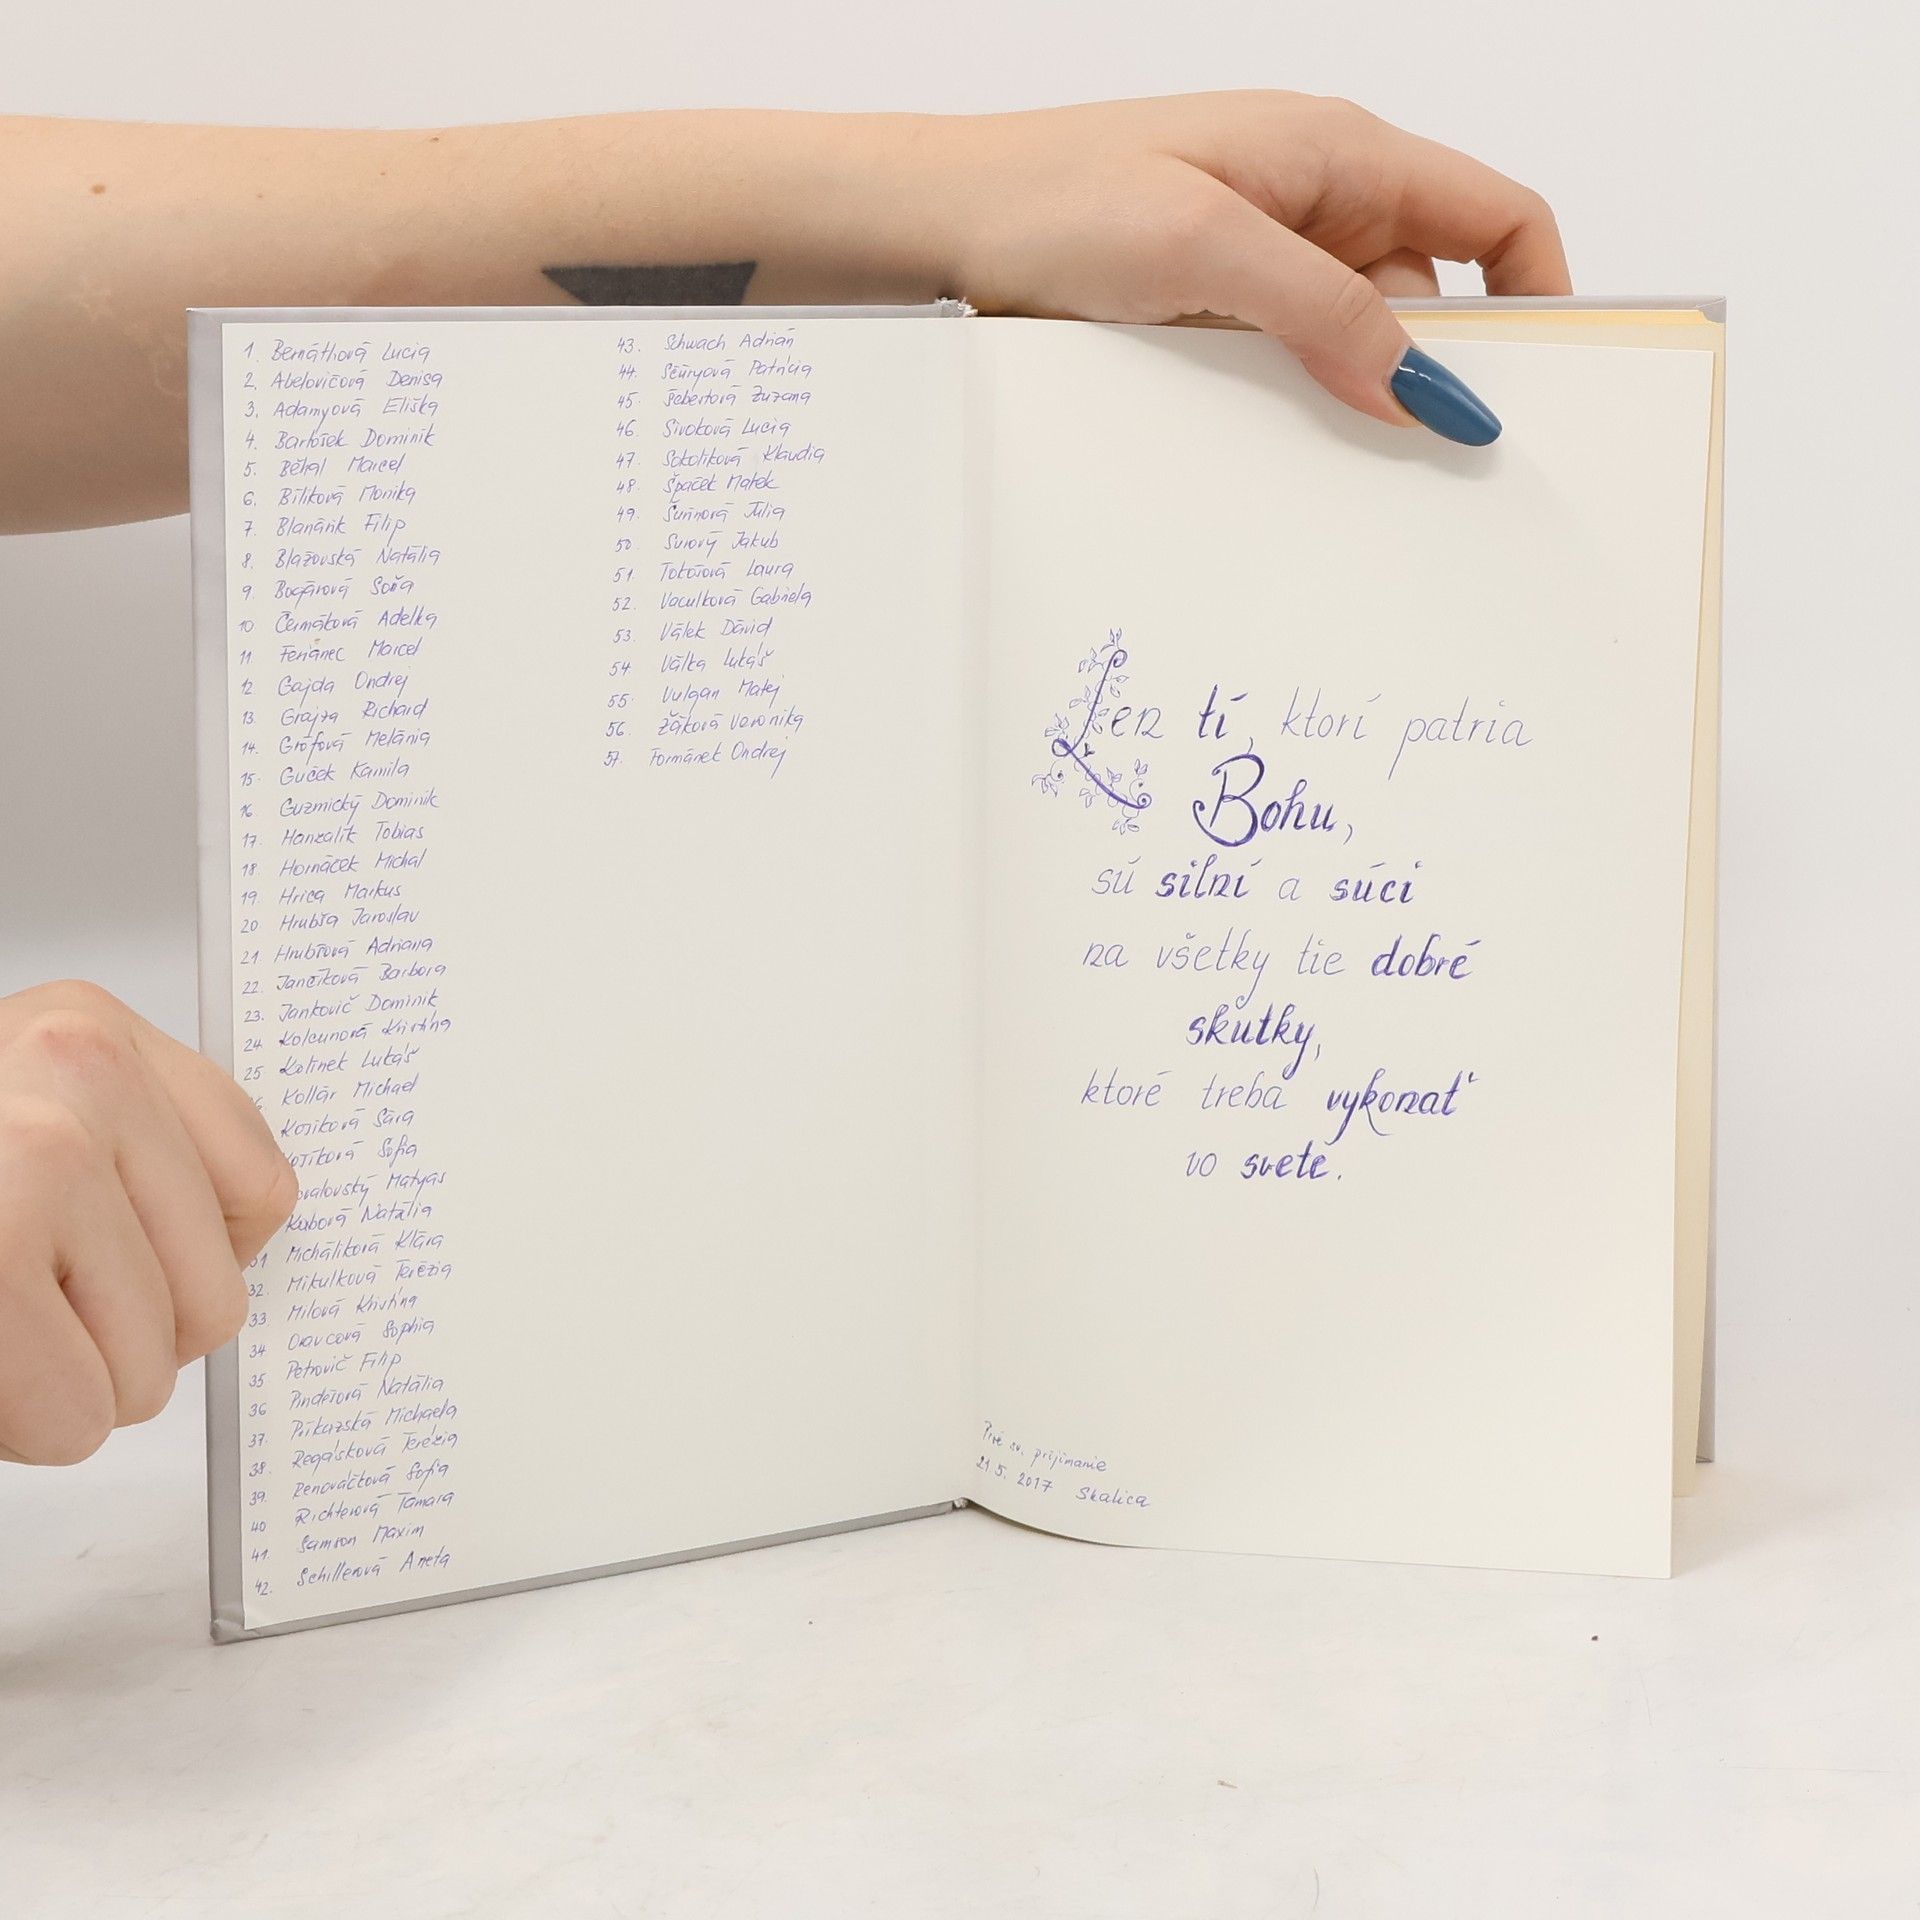 1. Bernáthová Lucia
2. Abelovičová Denisa
3. Adamyová Eliška
4. Bartošek Dominik
5. Běhal Marcel
6. Bílíková Monika
7. Blanárik Filip
8. Blažovská Natália
9. Bogárová Soňa
10 Čermáková Adelka
11. Ferianec Marcel
12. Gajda Ondrej
13. Grajza Richard
14. Grófová Melánia
15. Guček Kamila
16. Guzmický Dominik
17. Hanzalík Tobias
18. Hornáček Michal
19. Hrica Markus
20 Hrubša Jaroslav
21 Hrubšová Adriana
22. Jančíková Barbora
23. Jankovič Dominik
24 Kolcunová Kristína
25 Kolínek Lukáš
Kollár Michael
Kosíková Sára
Kosíková Sofia
Matyas
Kubová Natália
31 Michálíková Klára
32. Mikulková Terézia
33. Milová Kristína
34 Oravcová Sophia
35 Petrovič Filip
36 Pindešová Natália
37. Príkazská Michaela
38. Regásková Terézia
39. Renováčková Sofia
40 Richterová Tamara
41. Samson Maxim
42. Schillerová Aneta
43. Schwach Adrián
44. Ščúryová Patrícia
45. Šebertová Zuzana
46. Sivoková Lucia
47. Sokolíková Klaudia
48. Špaček Matek
49. Šurinová Júlia
50. Surový Jakub
51. Tokošová Laura
52. Vaculková Gabriela
53. Válek Dávid
54 Válka Lukáš
55. Vulgan Matej
56. Žáková Veronika
57. Formánek Ondrej
Len tí, ktorí patria
Bohu,
sú silní a súci
na všetky tie dobré
skutky,
ktoré treba vykonať
vo svete.
Prvé sv. prijímanie
21.5. 2017 Skalica